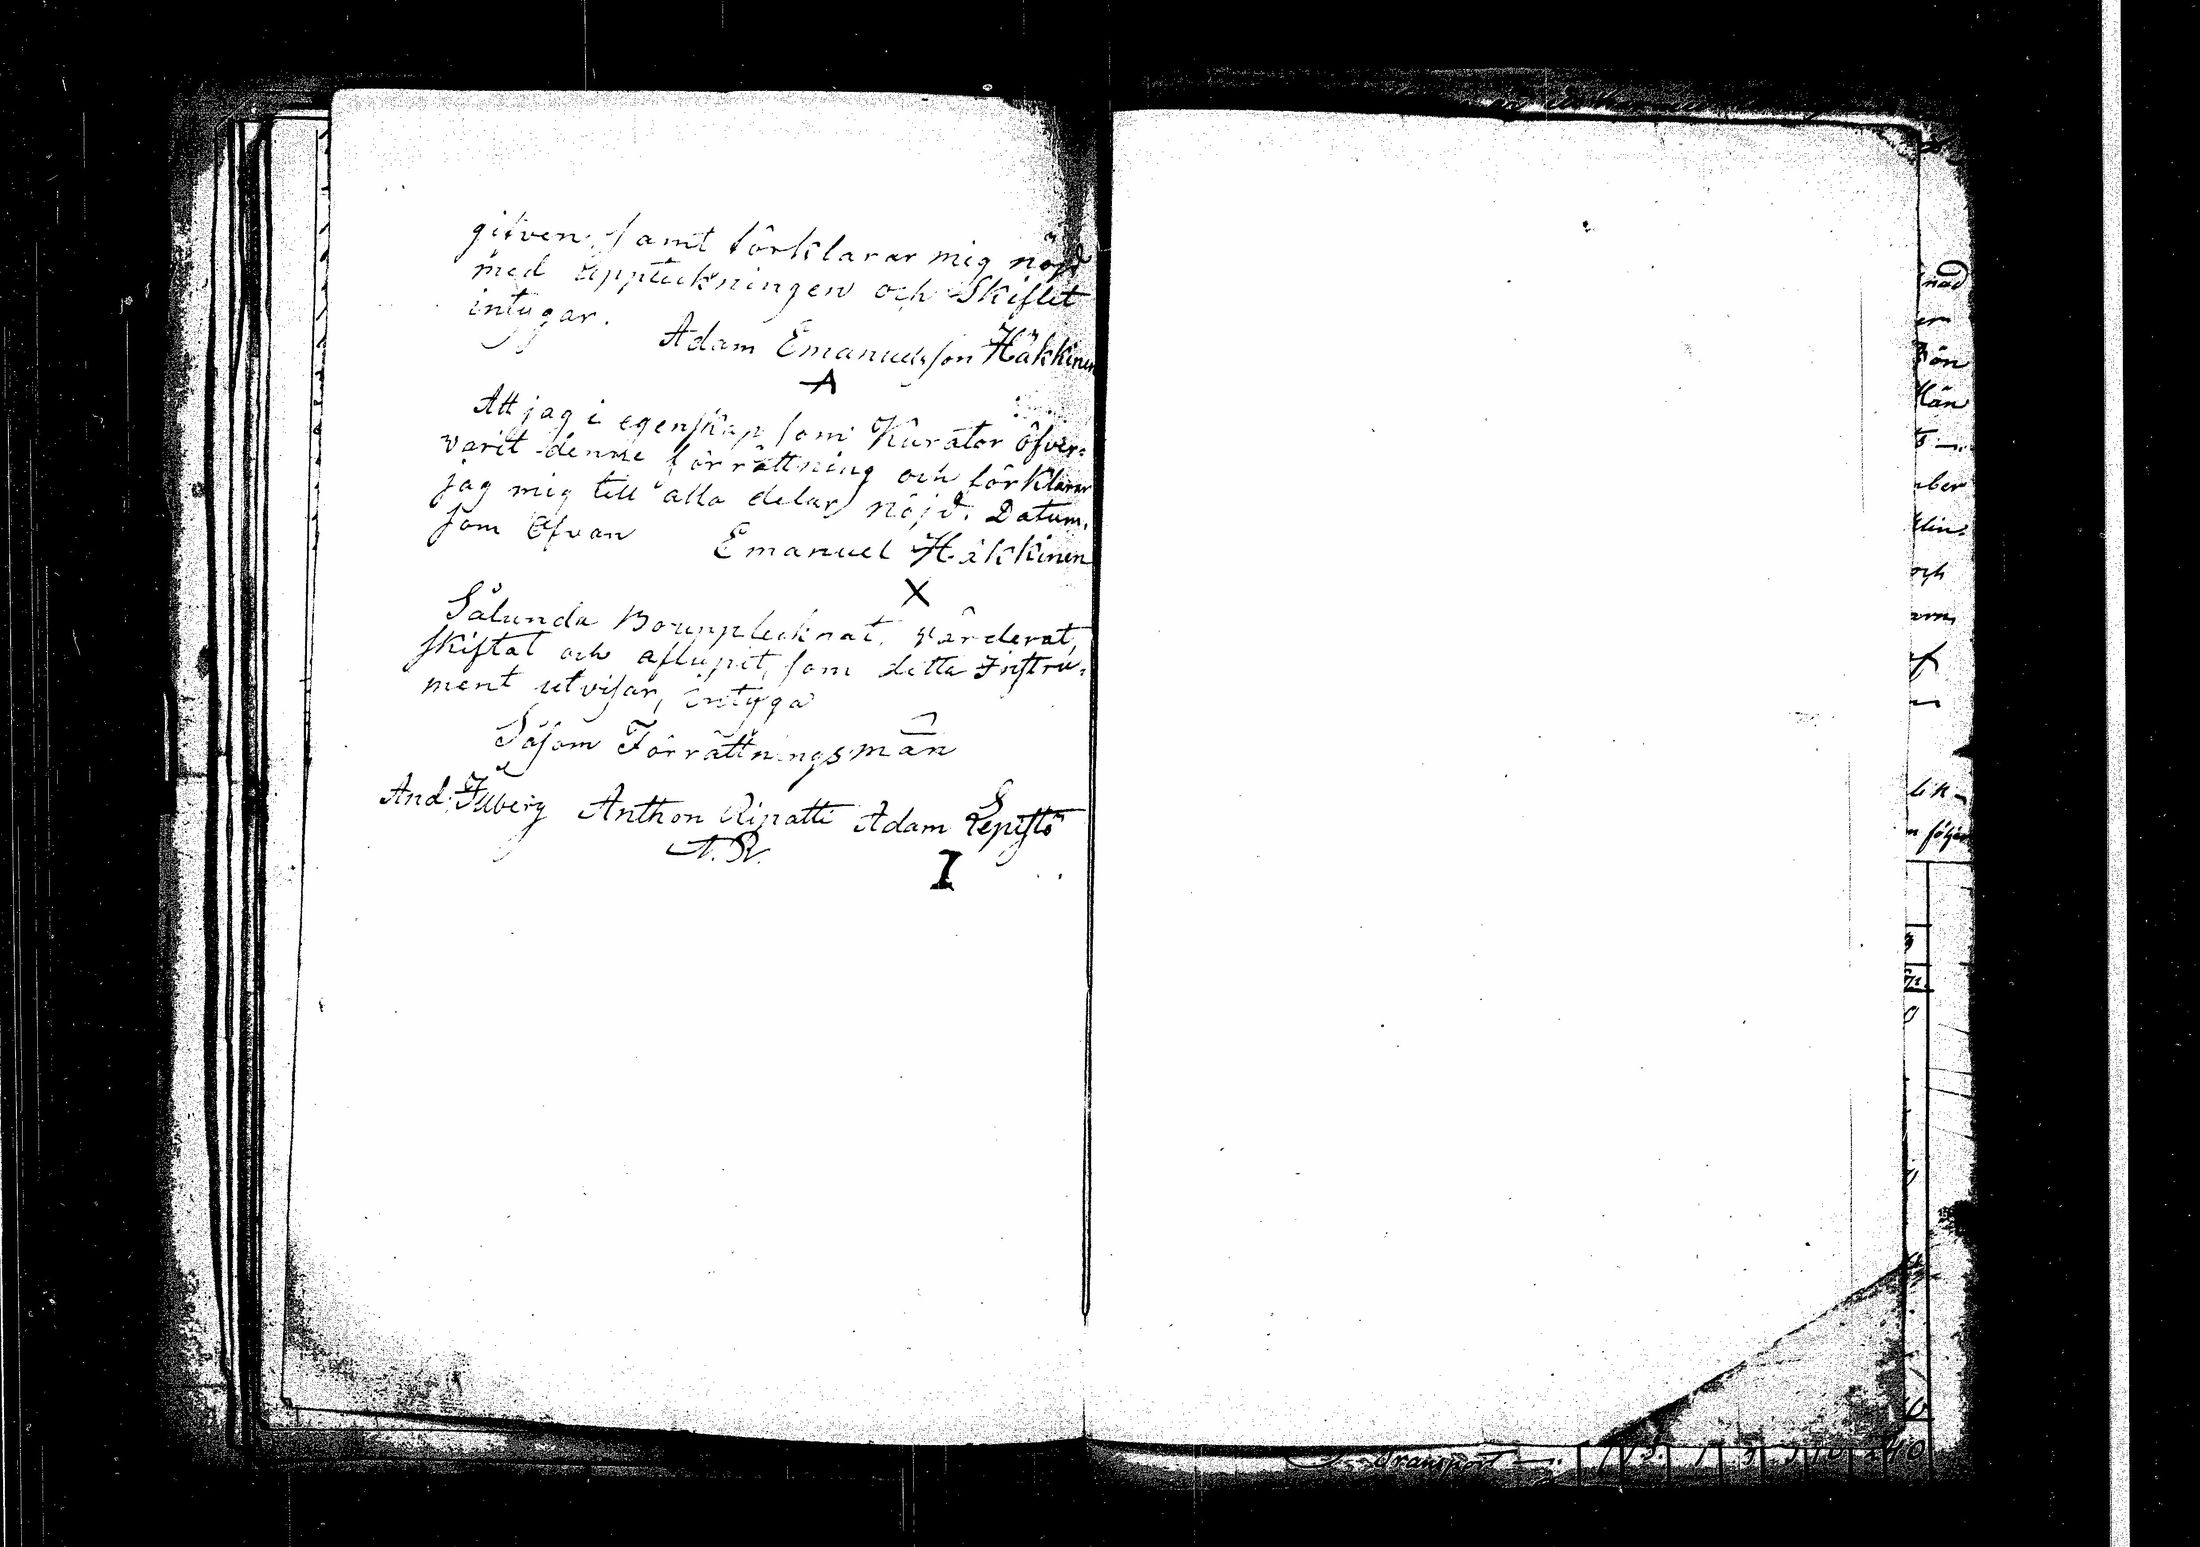 gifven, samt förklarar mig nöjd
med uppteckningen och Skiftet
intygar.
Adam Emanuelsson Häkkinen
A
Att jag i egenskap som Kurator öfver=
varit denne förrättning och förklarar
jag mig till alla delar nöjd. Datum.
som Ofvan Emanuel Häkkinen
X
Sålunda Bouppteknat, värderat,
skiftat och aflupit, som detta Instru=
ment utvisar, intyga
Såsom Förrättningsmän
And: Anthon Ripatti Adam Lepistö
A. R. I
nad
er
män
ber
och
af
följer
Transport